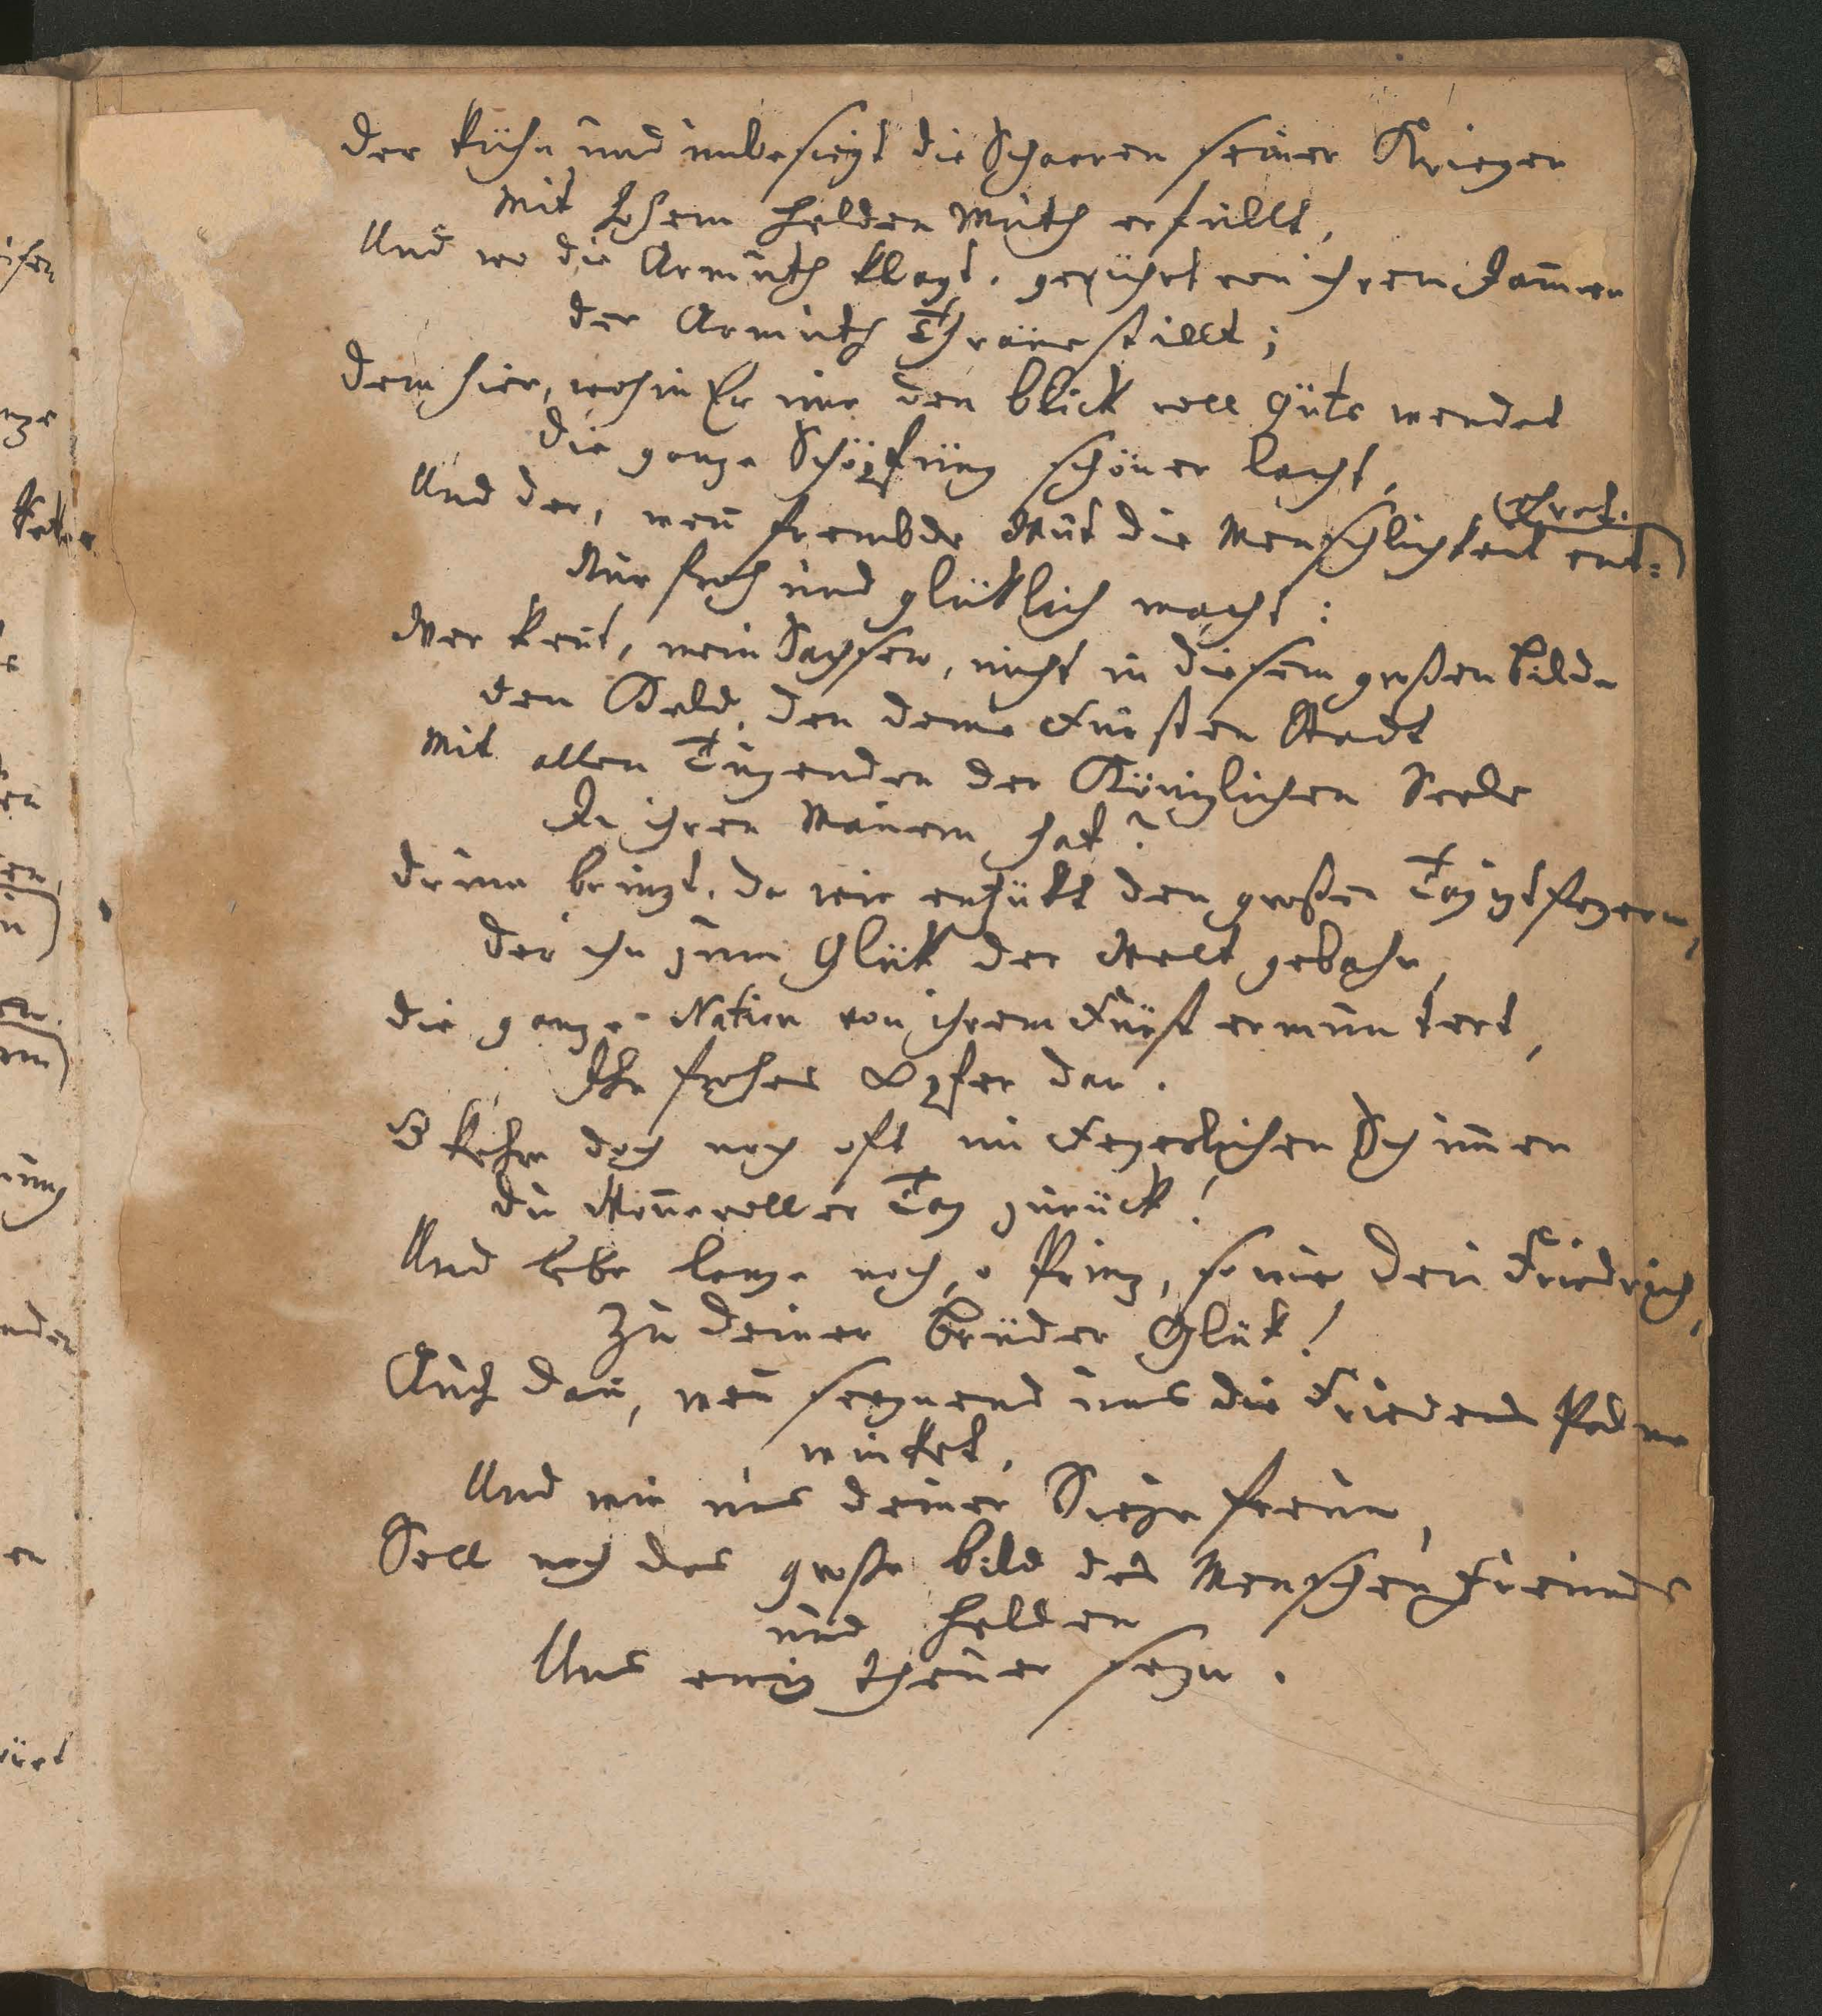 Der kühn und unbesiegt die Schaaren seiner Krieger
Mit hohem Helden Muth erfüllt,
Und wo die Armuth klagt, gerührt von ihrem Jam̄er
der Armuth Thräne stillt;
Dem hier, wohin Er nur den blick voll Güte wendet
die ganze Schöpfung schöner lacht,
Und der, wen̄ frembde Wut die Menschlichkeit ent=
(ehret.
Nur froh und glüklich macht:
Wer kent, mein Sachsen, nicht in diesem großen bilde
den Held, den deine Fürsten Stadt
Mit allen Tugenden der Königlichen Seele
In ihren Mauern hat?
drum bringt, da wir entzükt den großen Tag izt feyern,
der ihn zum Glük der Welt gebahr,
die ganze Nation von ihrem Fürst ermuntert,
Ihr frohes Opfer dar.
O kehre doch noch oft im Feyerlichen Schim̄er
du Won̄evoller Tag zurück!
Und lebe lange noch, o Prinz, so wie dein Friedrich,
Zu deiner Brüder Glük!
Auch dan̄, wen̄ seegnend uns die Friedens Palme
winket,
Und wir uns deiner Siege freun,
Soll noch das große bild des Menschen Freunds
und Helden
Uns ewig theuer seyn.